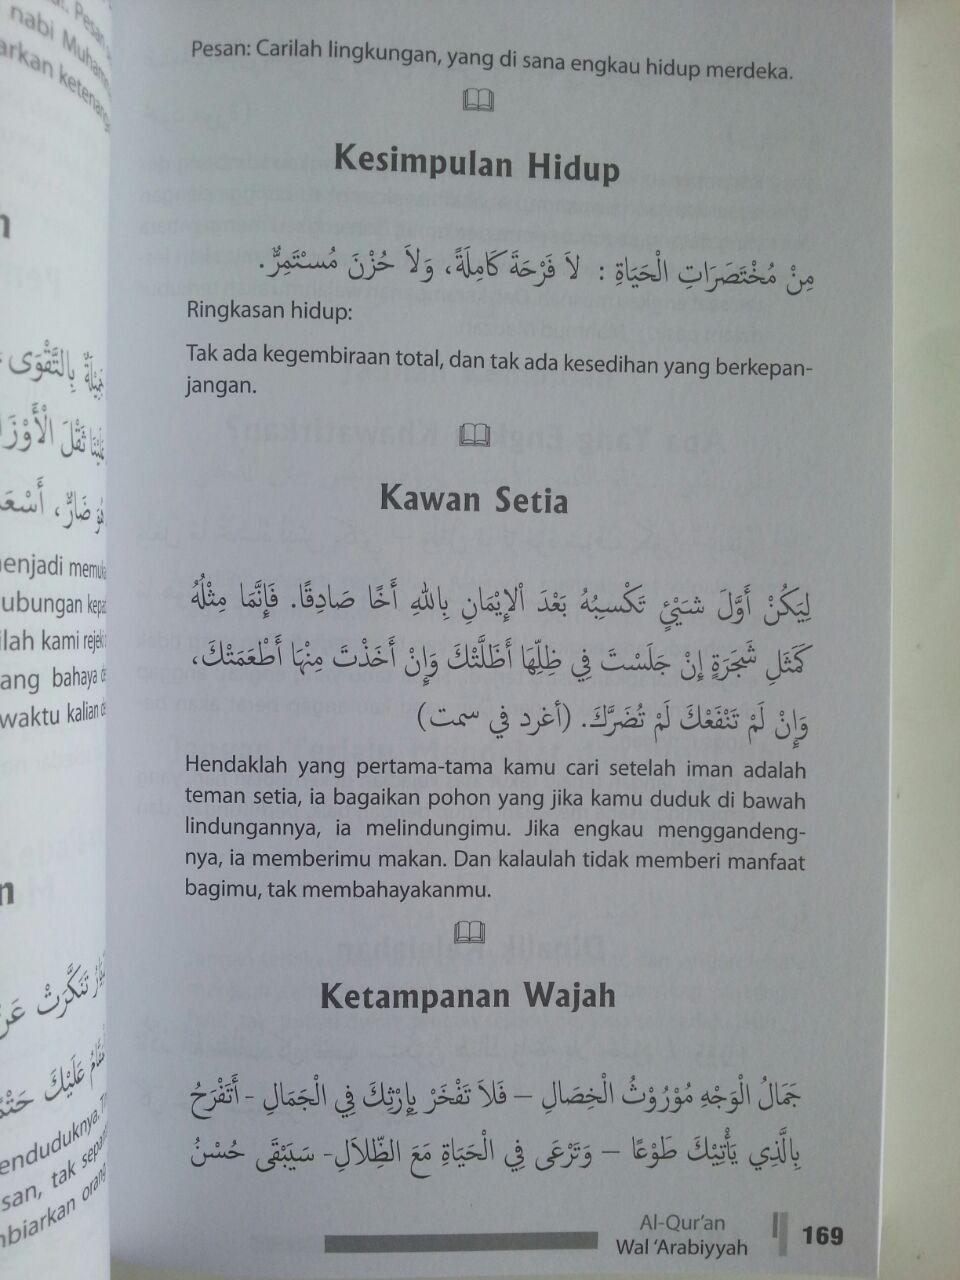 nabi Muham
arkan ketenang
Pesan: Carilah lingkungan, yang di sana engkau hidup merdeka.
Kesimpulan Hidup
مِنْ مُخْتَصَرَاتِ الْحَيَاةِ : لاَ فَرْحَةَ كَامِلَةً، وَلاَ حُزْنَ مُسْتَمِرٌّ.
Ringkasan hidup:
Tak ada kegembiraan total, dan tak ada kesedihan yang berkepan-
jangan.
Kawan Setia
لِيَكُنْ أَوَّلَ شَيْئٍ تَكْسِبُهُ بَعْدَ اْلإِيْمَانِ بِاللهِ أَخًا صَادِقًا. فَإِنَّمَا مِثْلُهُ
كَمَثَلِ شَجَرَةٍ إِنْ جَلَسْتَ فِي ظِلِّهَا أَظَلَّتْكَ وَإِنْ أَخَذْتَ مِنْهَا أَطْعَمَتْكَ،
وَإِنْ لَمْ تَنْفَعْكَ لَمْ تُضَرَّكَ. (أغرد في سمت)
Hendaklah yang pertama-tama kamu cari setelah iman adalah
teman setia, ia bagaikan pohon yang jika kamu duduk di bawah
lindungannya, ia melindungimu. Jika engkau menggandeng-
nya, ia memberimu makan. Dan kalaulah tidak memberi manfaat
bagimu, tak membahayakanmu.
Ketampanan Wajah
جَمَالُ الْوَجْهِ مُوْرُوْثُ الْخِصَالِ – فَلاَ تَفْخَرْ بِإِرْثِكَ فِي الْجَمَالِ - أَتَفْرَحُ
بِالَّذِي يَأْتِيْكَ طَوْعًا – وَتَرْعَى فِي الْحَيَاةِ مَعَ الظِّلاَلِ- سَيَبْقَى حُسْنُ
Al-Qur'an
Wal 'Arabiyyah
169